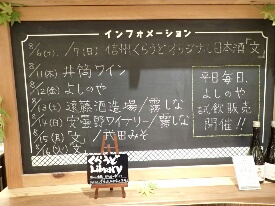 インフォメーション
8/6(土)、/7(日)信州くらうどオリジナル日本酒「文」
8/11(木)井筒ワイン
8/12(金)よしのや
8/13(土)遠藤酒造場/霧しな
8/14(日)安曇野ワイナリー/霧しな
8/15(月)「文」 武田みそ
8/16(火)「文」
平日毎日、
よしのや
試飲販売
開催!!
くらうど
Library